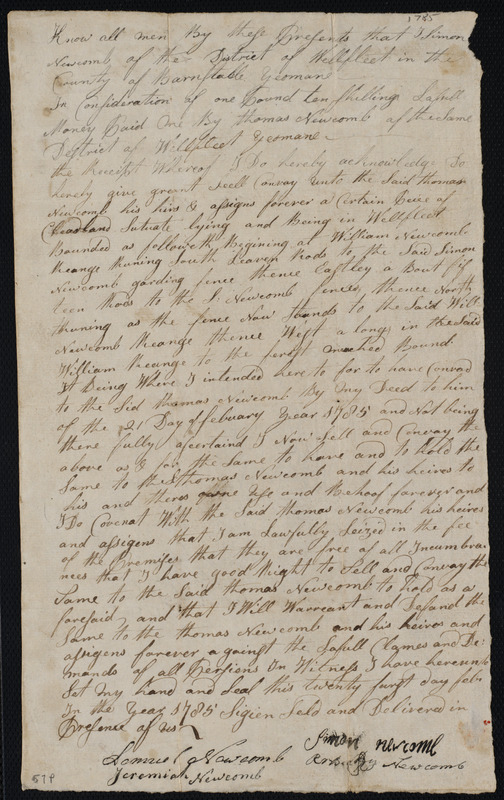 1785
Know all men By these Presents that I Simon
Newcomb of the District of Wellfleet in the
County of Barnstable Yeomane
In Consideration of one Pound ten Shillings Lafull
Money Paid me By thomas Newcomb of the Same
District of Wellfleet Yeomane
the Receipt Whereof I Do hereby acknowledge Do
hereby give greant Sell Convay unto the Said thomas
Newcomb his hirs & assigns forever a Certain Peice of
Cleasland Sutuate lying and Being in Wellfleet
Bounded as followeth Begining at William Newcomb
Reange Runing South Leaven Rods to the Said Simon
Newcomb garding fence thence Eastley a Bout fif
teen Rods to the Sd Newcomb fence, thence North
Runing as the fence Now Stands to the Said Will
Newcomb Reange thence West a long in the Said
William Reange to the ferst mached Bound
It Being Where I intended here to for to have Convad
to the Sid thomas Newcomb By my Deed to him
of the 21 Day of Febuary Year 1785 and Not being
there fully aceertaind I Now Sell and Convay the
above as & for the Same to have and to hold the
Same to the Sd thomas Newcomb and his heires to
his and theres use and Behoof forever and
I Do Covenat With the Said thomas Newcomb his heires
and assigens that I am Lawfully Seized in the fee
of the Premises that they are free of all Incumbra
nces that I have good Right to Sell and Convay the
Same to the Said thomas Newcomb to hold as a
foresaid and that I Will Warreant and Defand the
Same to the thomas Newcomb and his heires and
assigens forever against the Lafull Clames and De:
mands of all Persions In Witness I have hereunto
Set my hand and Seal this twenty furst day feb
In the Year 1785 Sigien Seld and Delivered in
Presence of us
Simon newcomb
Lemuel Newcomb
Newcomb
Jeremiah Newcomb